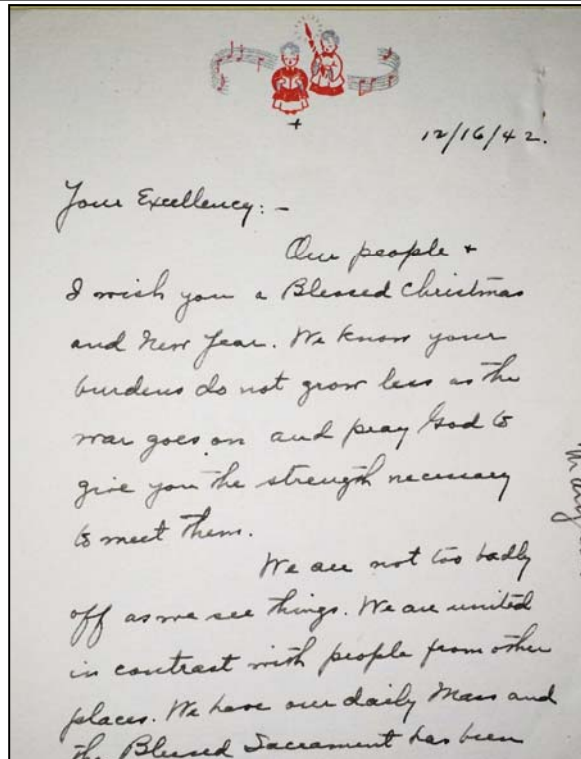 +
12/16/42.
Your Excellency: -
Our people +
I wish you a Blessed Christmas
and New Year. We know your
burdens do not grow less as the
war goes on and pray God to
give you the strength necessary
to meet them.
We are not too badly
off as we see things. We are united
in contrast with people from other
places. We have our daily Mass and
the Blessed Sacrament has been